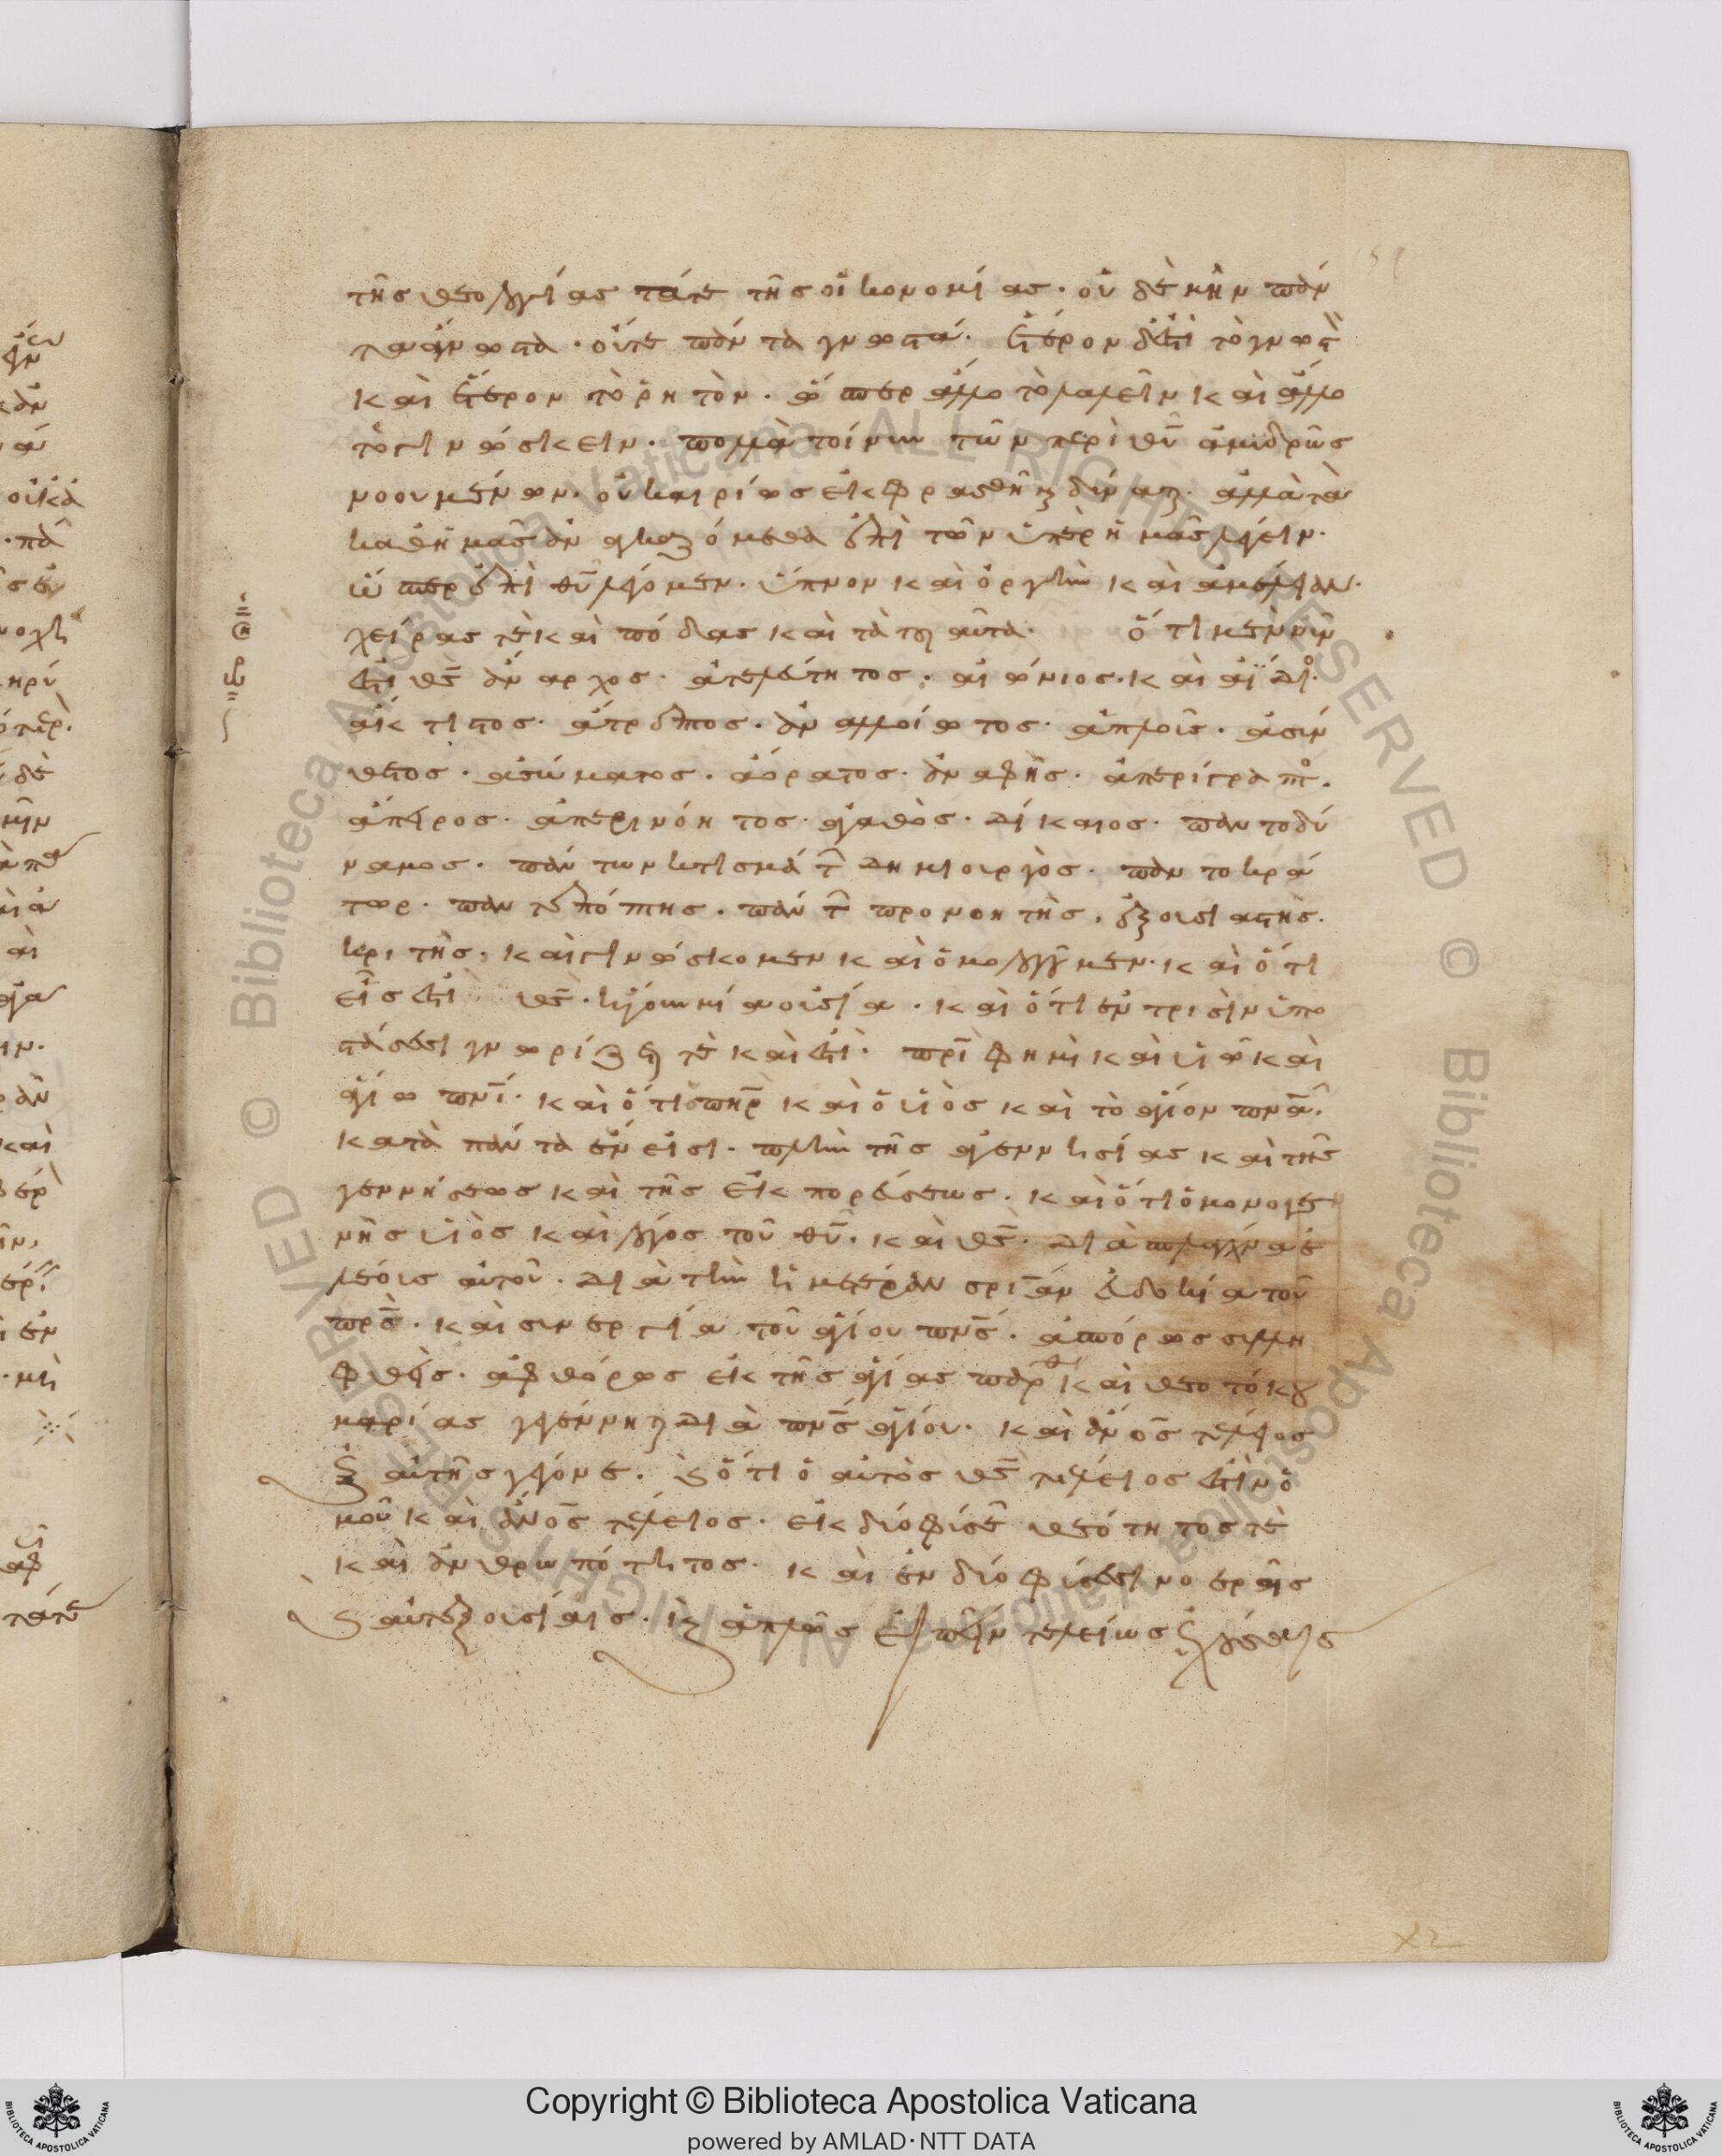 τῆς θεολογίας τά τε τῆς οἰκονομίας· οὐδὲ μὴν πάν
τα ἄγνωστα· οὔτε πάντα γνωστά. ἕτερον δέ ἐστι τὸ γνωστ
καὶ ἕτερον τὸ ῥητὸν· ὥσπερ ἄλλο τὸ λαλεῖν καὶ ἄλλο
τὸ γινώσκειν· πολλὰ τοίνυν τῶν περὶ θῦ ἀμυδρῶς
νοουμένων· οὐ καιρίως ἐκφρασθῆναι δύναται· ἀλλὰ τὰ
καθ ἡμᾶς ἀναγκαζόμεθα ἐπὶ τῶν ὑπὲρ ἡμᾶς λέγειν·
ὥσπερ ἐπὶ θῦ λέγομεν· ὕπνον καὶ ὀργὴν καὶ ἀμέλειαν·
χεῖρας τὲ καὶ πόδας καὶ τὰ τοιαῦτα· ὅτι μὲν οὖν
ἐστι θς ἄναρχος· ἀτελεύτητος· αἰώνιος· καὶ ἀΐδι·
ἄκτιστος· ἄτρεπτος· ἀναλλοίωτος· ἁπλοῦς· ἀσύν
θετος· ἀσώματος· ἀόρατος· ἀναφὴς· ἀπερίγραπτο·
ἄπειρος· ἀπερινόητος· ἀγαθὸς· δίκαιος· παντοδύ
ναμος· πάντων κτισμάτ δημιουργὸς· παντοκρά
τωρ· παντεπόπτης· πάντ προνοητὴς· ἐξουσιαστὴς·
κριτὴς· καὶ γινώσκομεν καὶ ὁμολογοῦμεν· καὶ ὅτι
εἷς ἐστι θς· ἤγουν μία οὐσία· καὶ ὅτι ἐν τρισὶν ὑπο
στάσεσι γνωρίζεταί τὲ καὶ ἐστὶ· πρι φημὶ καὶ υἱῶ καὶ
ἁγίω πνι· καὶ ὅτι ὁ πηρ καὶ ὁ υἱὸς καὶ τὸ ἅγιον πνα·
κατὰ πάντα ἕν εἰσι· πλὴν τῆς ἀγεννησίας καὶ τῆς
γεννήσεως καὶ τῆς ἐκπορεύσεως· καὶ ὅτι ὁ μονογε
νὴς υἱὸς καὶ λόγος τοῦ θῦ· καὶ θς· διὰ σπλάγχνα ἐ
λέους αὐτοῦ· διὰ τὴν ἡμετέραν σριαν εὐδοκία τοῦ
πρς· καὶ συνεργία τοῦ ἁγίου πνς· ἀσπόρως συλλη
φθεὶς· ἀφθόρως ἐκ τῆς ἁγίας παρθ καὶ θεοτόκου
μαρίας γεγέννηται διὰ πνς ἁγίου· καὶ ἄνος τέλειος
ἐξ αὐτῆς γέγονε· καὶ ὅτι ὁ αὐτὸς θς τέλειος ἐστὶν ὁ
μοῦ καὶ ἄνος τέλειος· ἐκ δύο φύσε θεότητος τὲ
καὶ ἀνθρωπότητος· καὶ ἐν δύο φύσεσι νοεραῖς
καὶ αὐτεξουσίαις· καὶ ἁπλῶς εἰπεῖν τελείως ἐχούσαις